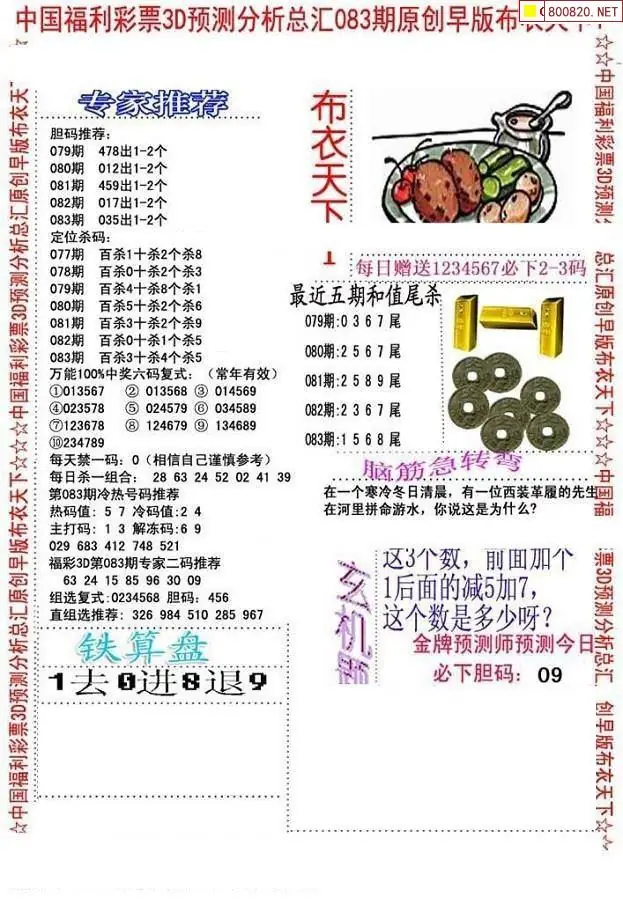 中国福利彩票3D预测分析总汇083期原创早版布衣天下
800820.NET
专家推荐
胆码推荐:
079期 478出1-2个
080期 012出1-2个
081期 459出1-2个
082期 017出1-2个
083期 035出1-2个
定位杀码:
077期 百杀1十杀2个杀8
078期 百杀0十杀2个杀3
079期 百杀4十杀8个杀1
080期 百杀5十杀2个杀6
081期 百杀3十杀2个杀9
082期 百杀0十杀1个杀5
083期 百杀3十杀4个杀5
万能100%中奖六码复式: (常年有效)
①013567 ② 013568 ③ 014569
④023578 ⑤ 024579 ⑥ 034589
⑦123678 ⑧ 124679 ⑨ 134689
⑩234789
每天禁一码: 0 (相信自己谨慎参考)
每日杀一组合: 28 63 24 52 02 41 39
第083期冷热号码推荐
热码值: 5 7 冷码值: 2 4
主打码: 1 3 解冻码: 6 9
029 683 412 748 521
福彩3D第083期专家二码推荐
63 24 15 85 96 30 09
组选复式: 0234568 胆码: 456
直组选推荐: 326 984 510 285 967
铁算盘
1去0进8退9
布衣天下
1
每日赠送1234567必下2-3码
最近五期和值尾杀
079期: 0 3 6 7 尾
080期: 2 5 6 7 尾
081期: 2 5 8 9 尾
082期: 2 3 6 7 尾
083期: 1 5 6 8 尾
脑筋急转弯
在一个寒冷冬日清晨，有一位西装革履的先生
在河里拼命游水，你说这是为什么?
玄机
这3个数，前面加个
1后面的减5加7，
这个数是多少呀?
金牌预测师预测今日
必下胆码: 09
☆中国福利彩票3D预测分析总汇原创早版布衣天下☆☆☆中国福利彩票3D预测分析总汇原创早版布衣天
☆☆中国福利彩票3D预测分
总汇原创早版布衣天下☆☆☆中国福
票3D预测分析总汇
创早版布衣天下☆☆